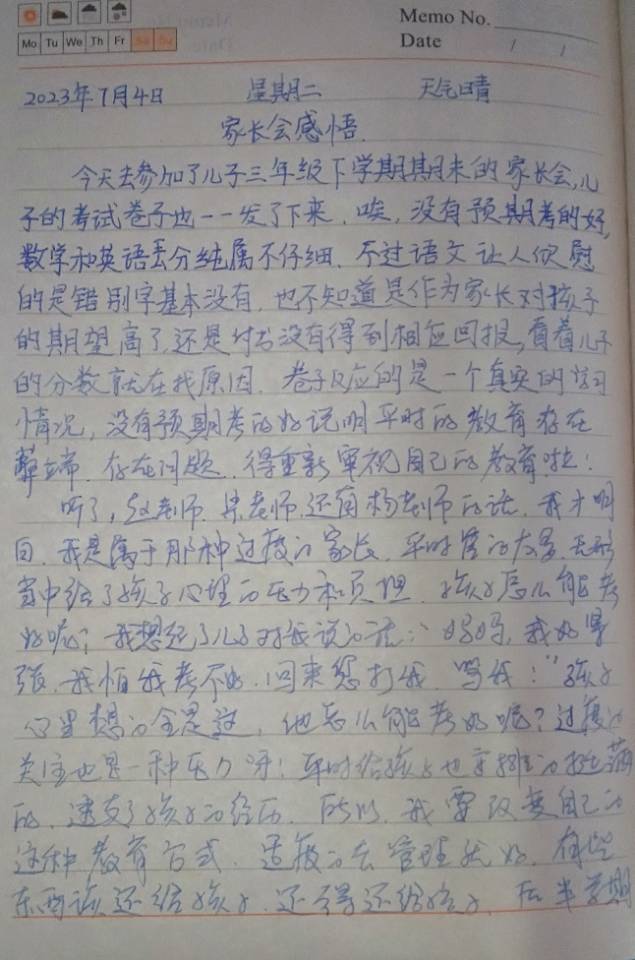 Memo No.
Mo Tu We Th Fr Sa Su
Date / /
2023年7月4日 星期二 天气晴
家长会感悟.
今天去参加了儿子三年级下学期期末的家长会,儿
子的考试卷子也一一发了下来.唉,没有预期考的好,
数学和英语丢分纯属不仔细.不过语文让人欣慰
的是错别字基本没有.也不知道是作为家长对孩子
的期望高了,还是付出没有得到相应回报,看着儿子
的分数就在找原因.卷子反应的是一个真实的学习
情况,没有预期考的好说明平时的教育存在
弊端.存在问题.得重新审视自己的教育啦!
听了,赵老师.朱老师,还有杨老师的话.我才明
白.我是属于那种过度的家长.平时管的太多.无形
当中给了孩子心理的压力和负担.孩子怎么能考
好呢?我想起了儿子对我说的话:"妈妈,我好紧
张.我怕我考不好.回来您打我.骂我!"孩子
心里想的全是这,他怎么能考好呢?过度的
关注也是一种压力呀!平时给孩子也安排的挺满
的.透支了孩子的经历.所以.我要改变自己的
这种教育方式.适度的去管理就好.有些
东西该还给孩子.还得还给孩子.后半学期